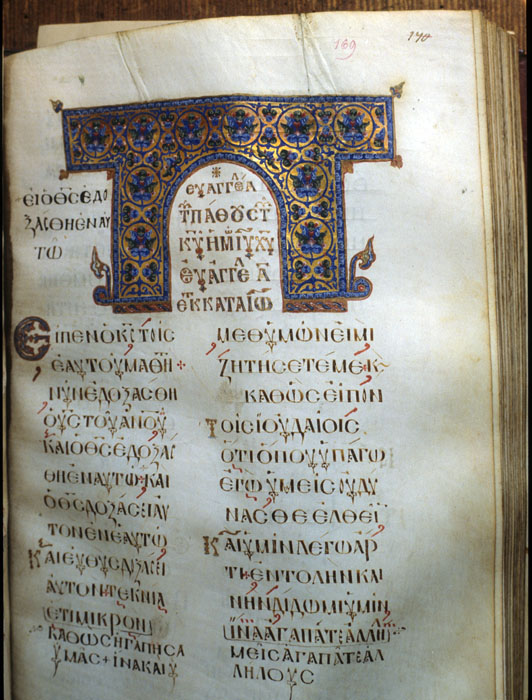 169 170
ΕΙΟΘΣΕΔΟ
ΞΑΣΘΗΕΝΑΥ
ΤΩ
ΕΥΑΓΓΕΛ
ΤΠΑΘΟΥΣΤ
ΚΥΗΜΙΥΧΥ
ΕΥΑΓΓΕΛ
ΕΚΚΑΤΑΙΩ
ΕΙΠΕΝΟΚΣΤΟΙΣ
ΕΑΥΤΟΥΜΑΘΗ+
ΝΥΝΕΔΟΞΑΣΘΗ
ΟΥΣΤΟΥΑΝΟΥ
ΚΑΙΟΘΣΕΔΟΞΑΣ
ΘΗΕΝΑΥΤΩ+ΚΑΙ
ΟΘΣΔΟΞΑΣΕΙΑΥ
ΤΟΝΕΝΕΑΥΤΩ
ΚΑΙΕΥΘΥΣΔΟΞΑΣΕΙ
ΑΥΤΟΝ+ΤΕΚΝΙΑ
ΕΤΙΜΙΚΡΟΝ
ΚΑΘΩΣΗΓΑΠΗΣΑ
ΥΜΑΣ+ΙΝΑΚΑΙΥ
ΜΕΘΥΜΩΝΕΙΜΙ
ΖΗΤΗΣΕΤΕΜΕΚ
ΚΑΘΩΣΕΙΠΟΝ
ΤΟΙΣΙΟΥΔΑΙΟΙΣ
ΟΤΙΟΠΟΥΥΠΑΓΩ
ΕΓΩΥΜΕΙΣΟΥΔΥ
ΝΑΣΘΕΕΛΘΕΙ
ΚΑΙΥΜΙΝΛΕΓΩΑΡ
ΤΙ+ΕΝΤΟΛΗΝΚΑΙ
ΝΗΝΔΙΔΩΜΙΥΜΙΝ
ΙΝΑΑΓΑΠΑΤΕΑΛΛΗ
ΜΕΙΣΑΓΑΠΑΤΕΑΛ
ΛΗΛΟΥΣ